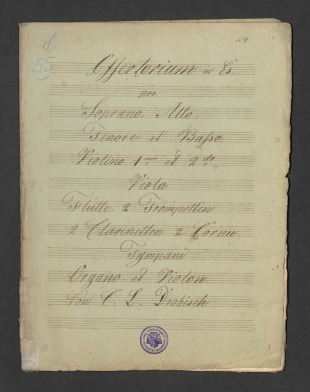 55
Offertorium in Es.
pro
Soprano, Alto,
Tenore et Basso.
Violino 1mo et 2do
Viola
Flutti, 2 Trompetten
2 Clarinetten 2 Corni,
Tympani
Organo et Violon.
von C. L. Drobisch